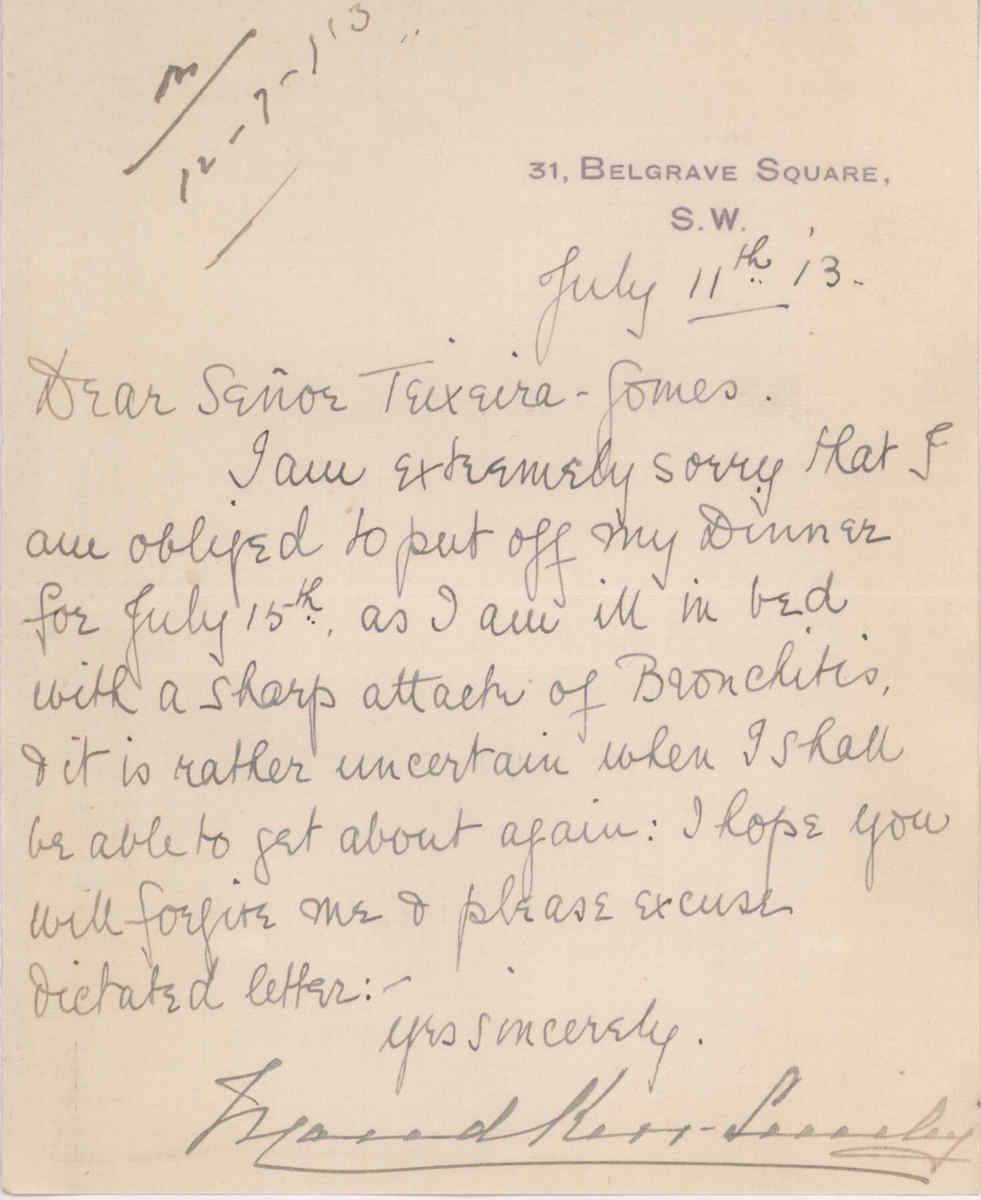 m
12-7-1'3
31, BELGRAVE SQUARE,
S.W.
July 11th '13.
Dear Señor Teixeira-Gomes.
I am extremely sorry that I
am obliged to put off my Dinner
for July 15th, as I am ill in bed
with a sharp attack of Bronchitis,
& it is rather uncertain when I shall
be able to get about again: I hope you
will forgive me & please excuse
dictated letter:-
Yrs sincerely.
Maud Kerr-Smiley